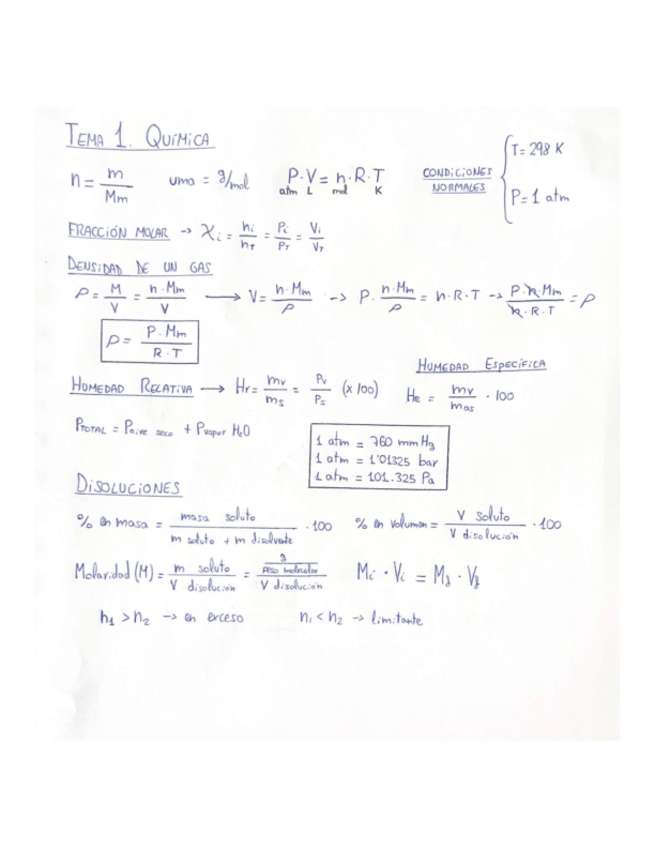 TEMA 1. QUÍMICA
n = m / Mm   uma = g/mol   P·V = n·R·T   CONDICIONES NORMALES { T = 298 K
atm L mol K   P = 1 atm
FRACCIÓN MOLAR → χi = ni / nT = Pi / PT = Vi / VT
DENSIDAD DE UN GAS
ρ = M / V = n·Mm / V → V = n·Mm / ρ → P · n·Mm / ρ = n·R·T → P·n·Mm / n·R·T = ρ
ρ = P·Mm / R·T
HUMEDAD ESPECÍFICA
HUMEDAD RELATIVA → Hr = mv / ms = Pv / Ps (x100)   He = mv / mas · 100
PTOTAL = Paire seco + Pvapor H2O
1 atm = 760 mmHg
1 atm = 1'01325 bar
1 atm = 101.325 Pa
DISOLUCIONES
% en masa = masa soluto / m soluto + m disolvente · 100   % en volumen = V soluto / V disolución · 100
Molaridad (M) = m soluto / V disolución = g / peso molecular / V disolución   Mi · Vi = Mf · Vf
n1 > n2 → en exceso   n1 < n2 → limitante